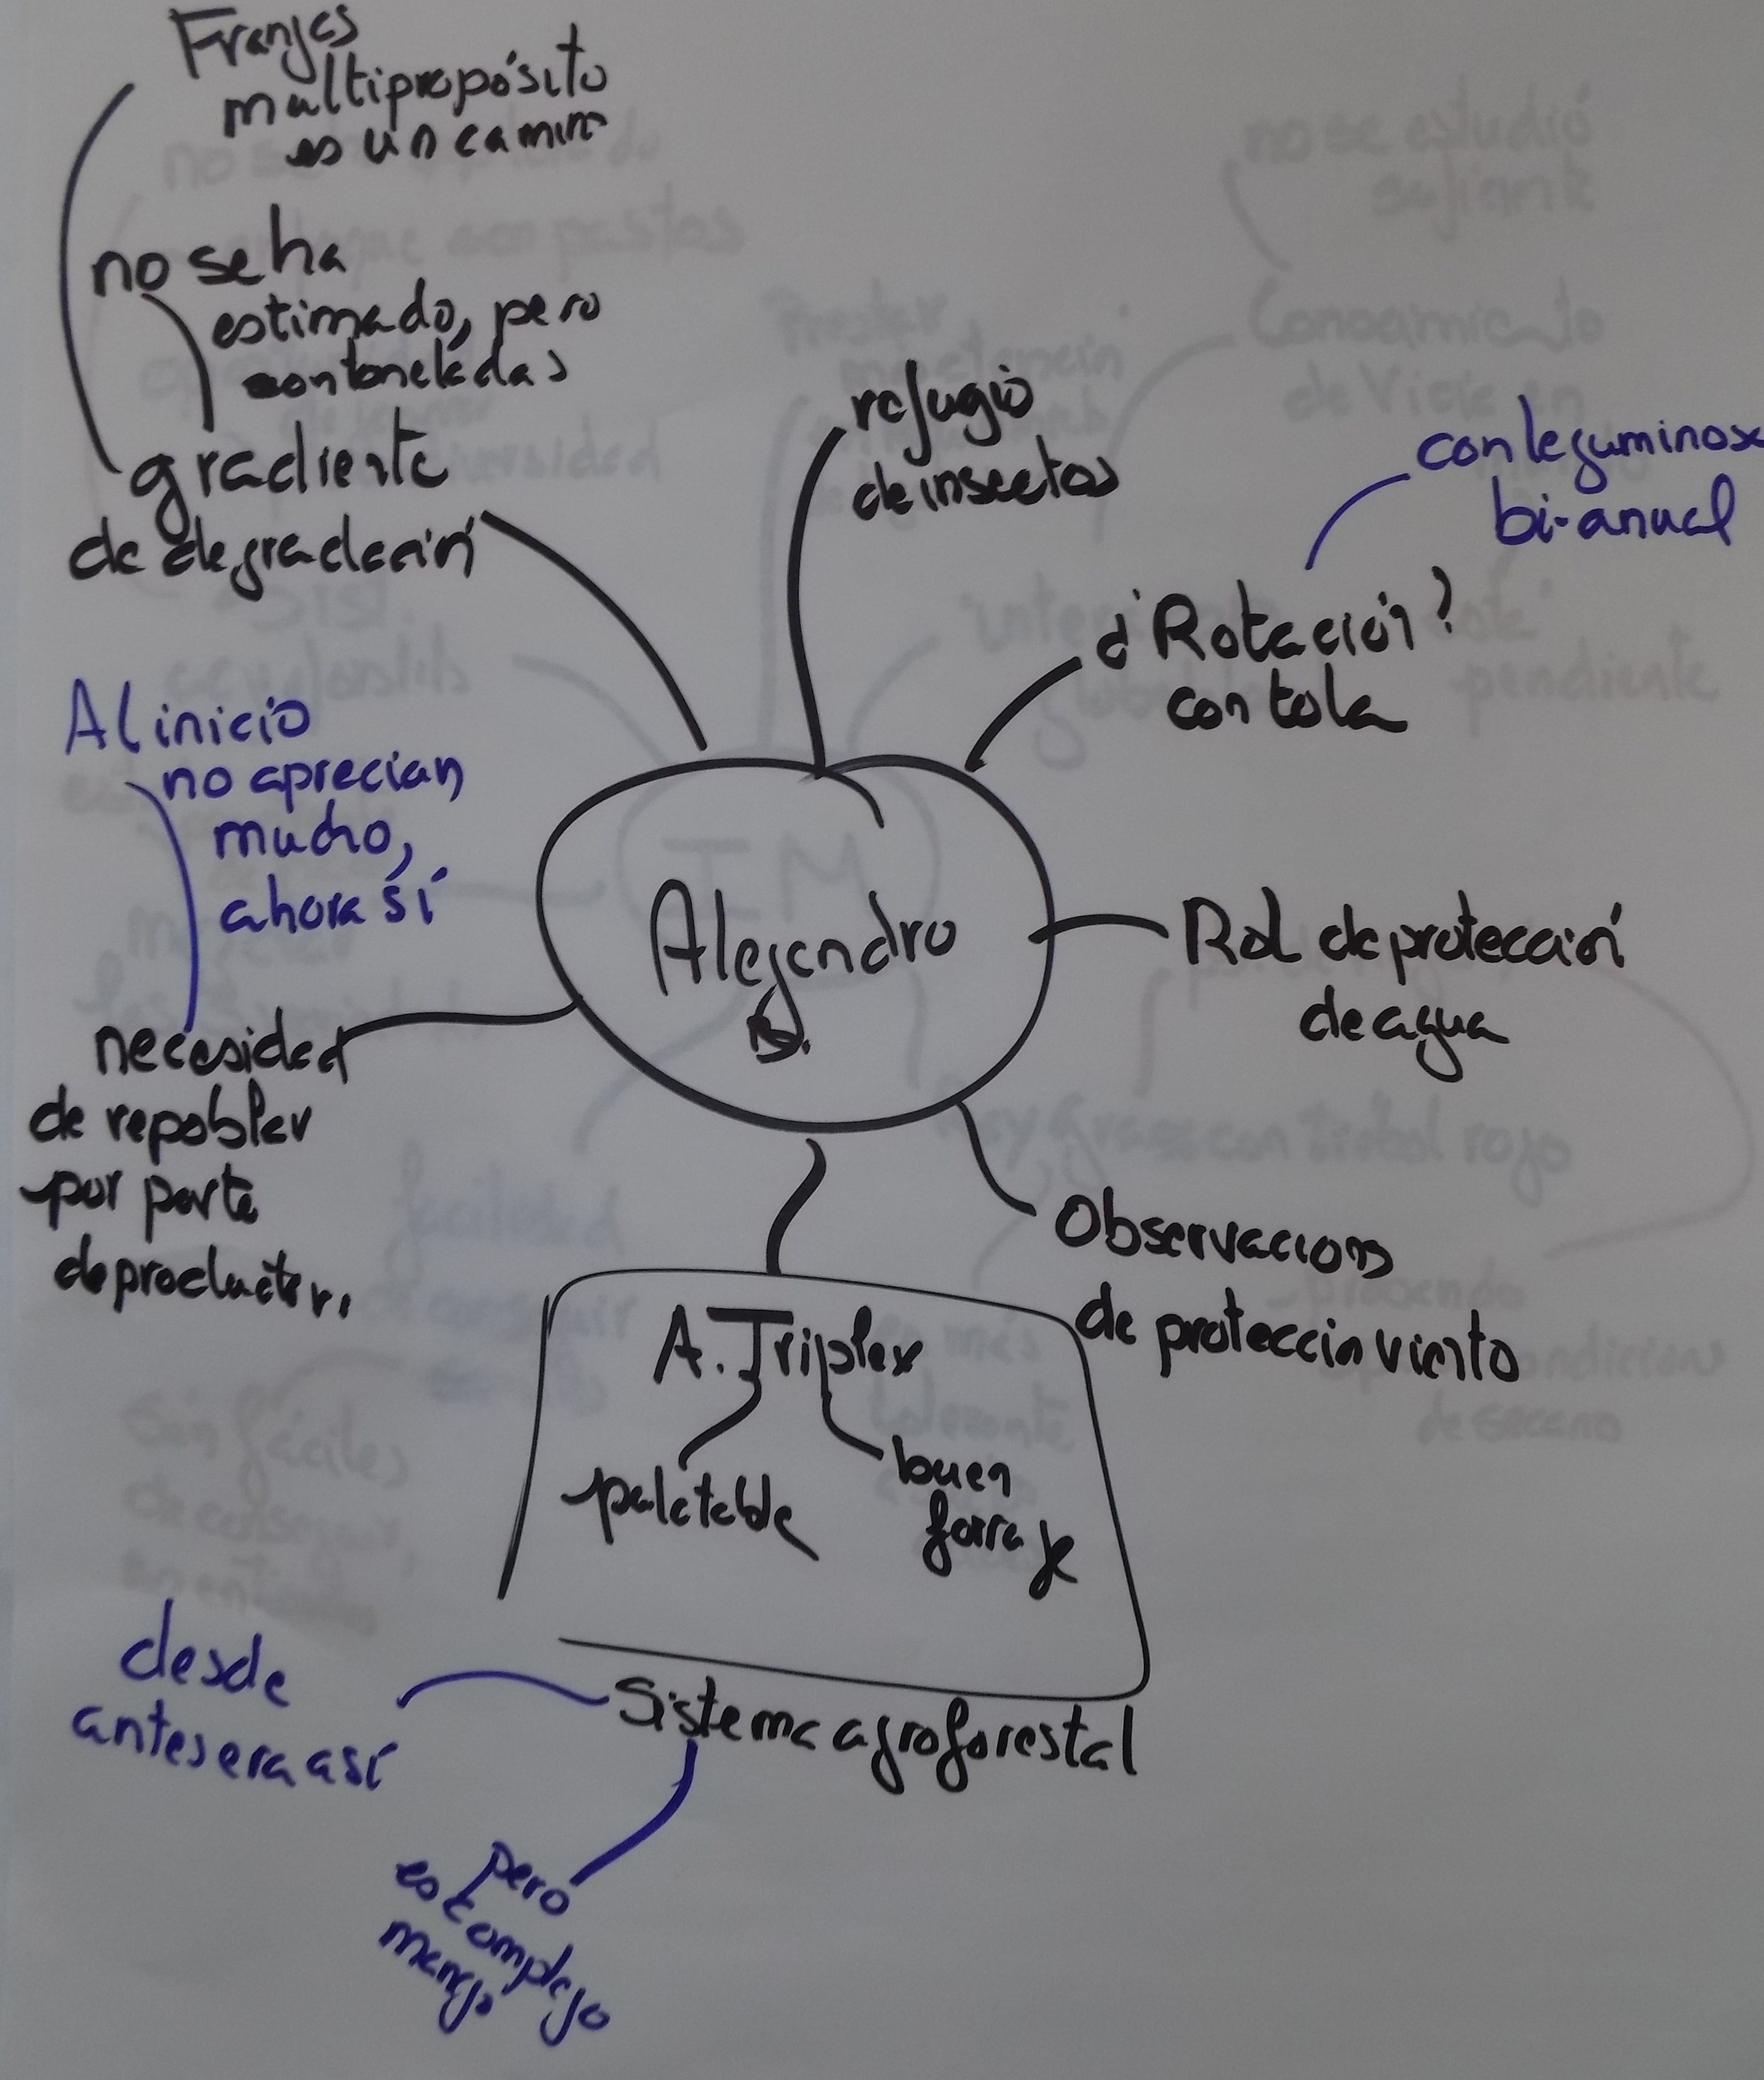 Franjas
multipropósito
es un camino
no se ha
estimado, pero
son toneladas
gradiente
de degradación
refugio
de insectos
con leguminosa
bi-anual
¿Rotación?
con tola
Al inicio
no aprecian
mucho,
ahora sí
Alejandro
B.
Rol de protección
de agua
necesidad
de repoblar
por parte
de productor.
Observacions
de proteccion viento
A. Triplex
palatable
buen
forraje
desde
antes era así
Sistema agroforestal
pero
es complejo
manejo